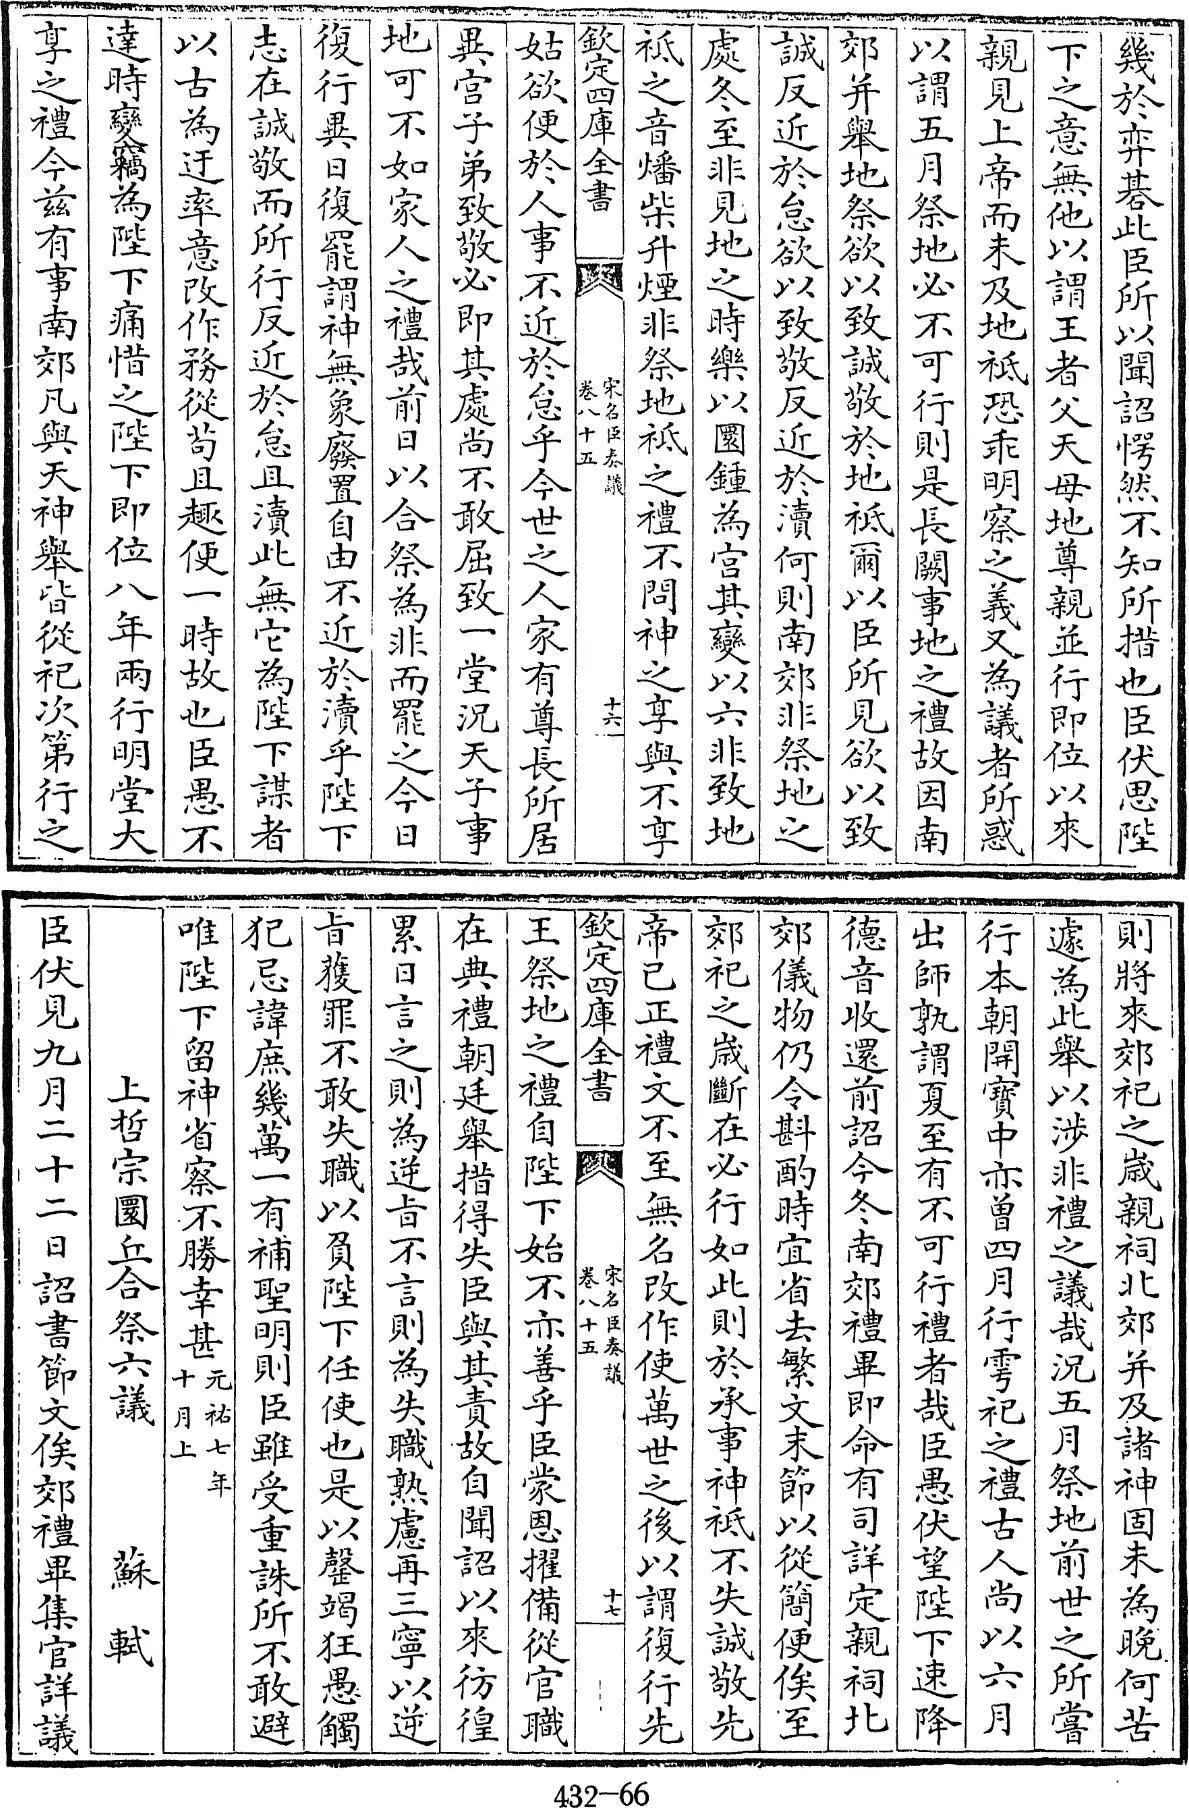 幾於弈棊此臣所以聞詔愕然不知所措也臣伏思陛
下之意無他以謂王者父天母地尊親並行即位以來
親見上帝而未及地祗恐乖明察之義又為議者所惑
以謂五月祭地必不可行則是長闕事地之禮故因南
郊并舉地祭欲以致誠敬於地祗爾以臣所見欲以致
誠反近於怠欲以致敬反近於瀆何則南郊非祭地之
處冬至非見地之時樂以圜鍾為宮其變以六非致地
祗之音燔柴升煙非祭地祗之禮不問神之享與不享
欽定四庫全書
宋名臣奏議
卷八十五
十六
姑欲便於人事不近於怠乎今世之人家有尊長所居
異宮子弟致敬必即其處尚不敢屈致一堂況天子事
地可不如家人之禮哉前日以合祭為非而罷之今日
復行異日復罷謂神無象廢置自由不近於瀆乎陛下
志在誠敬而所行反近於怠且瀆此無它為陛下謀者
以古為迂率意改作務從苟且趣便一時故也臣愚不
達時變竊為陛下痛惜之陛下即位八年兩行明堂大
享之禮今茲有事南郊凡與天神舉皆從祀次第行之
則將來郊祀之歲親祠北郊并及諸神固未為晚何苦
遽為此舉以涉非禮之議哉況五月祭地前世之所嘗
行本朝開寶中亦曾四月行雩祀之禮古人尚以六月
出師孰謂夏至有不可行禮者哉臣愚伏望陛下速降
德音收還前詔今冬南郊禮畢即命有司詳定親祠北
郊儀物仍令斟酌時宜省去繁文末節以從簡便俟至
郊祀之歲斷在必行如此則於承事神祗不失誠敬先
帝已正禮文不至無名改作使萬世之後以謂復行先
欽定四庫全書
宋名臣奏議
卷八十五
十七
王祭地之禮自陛下始不亦善乎臣蒙恩擢備從官職
在典禮朝廷舉措得失臣與其責故自聞詔以來彷徨
累日言之則為逆旨不言則為失職熟慮再三寧以逆
旨獲罪不敢失職以負陛下任使也是以罄竭狂愚觸
犯忌諱庶幾萬一有補聖明則臣雖受重誅所不敢避
唯陛下留神省察不勝幸甚元祐七年十月上
上哲宗圜丘合祭六議 蘇軾
臣伏見九月二十二日詔書節文俟郊禮畢集官詳議
432-66